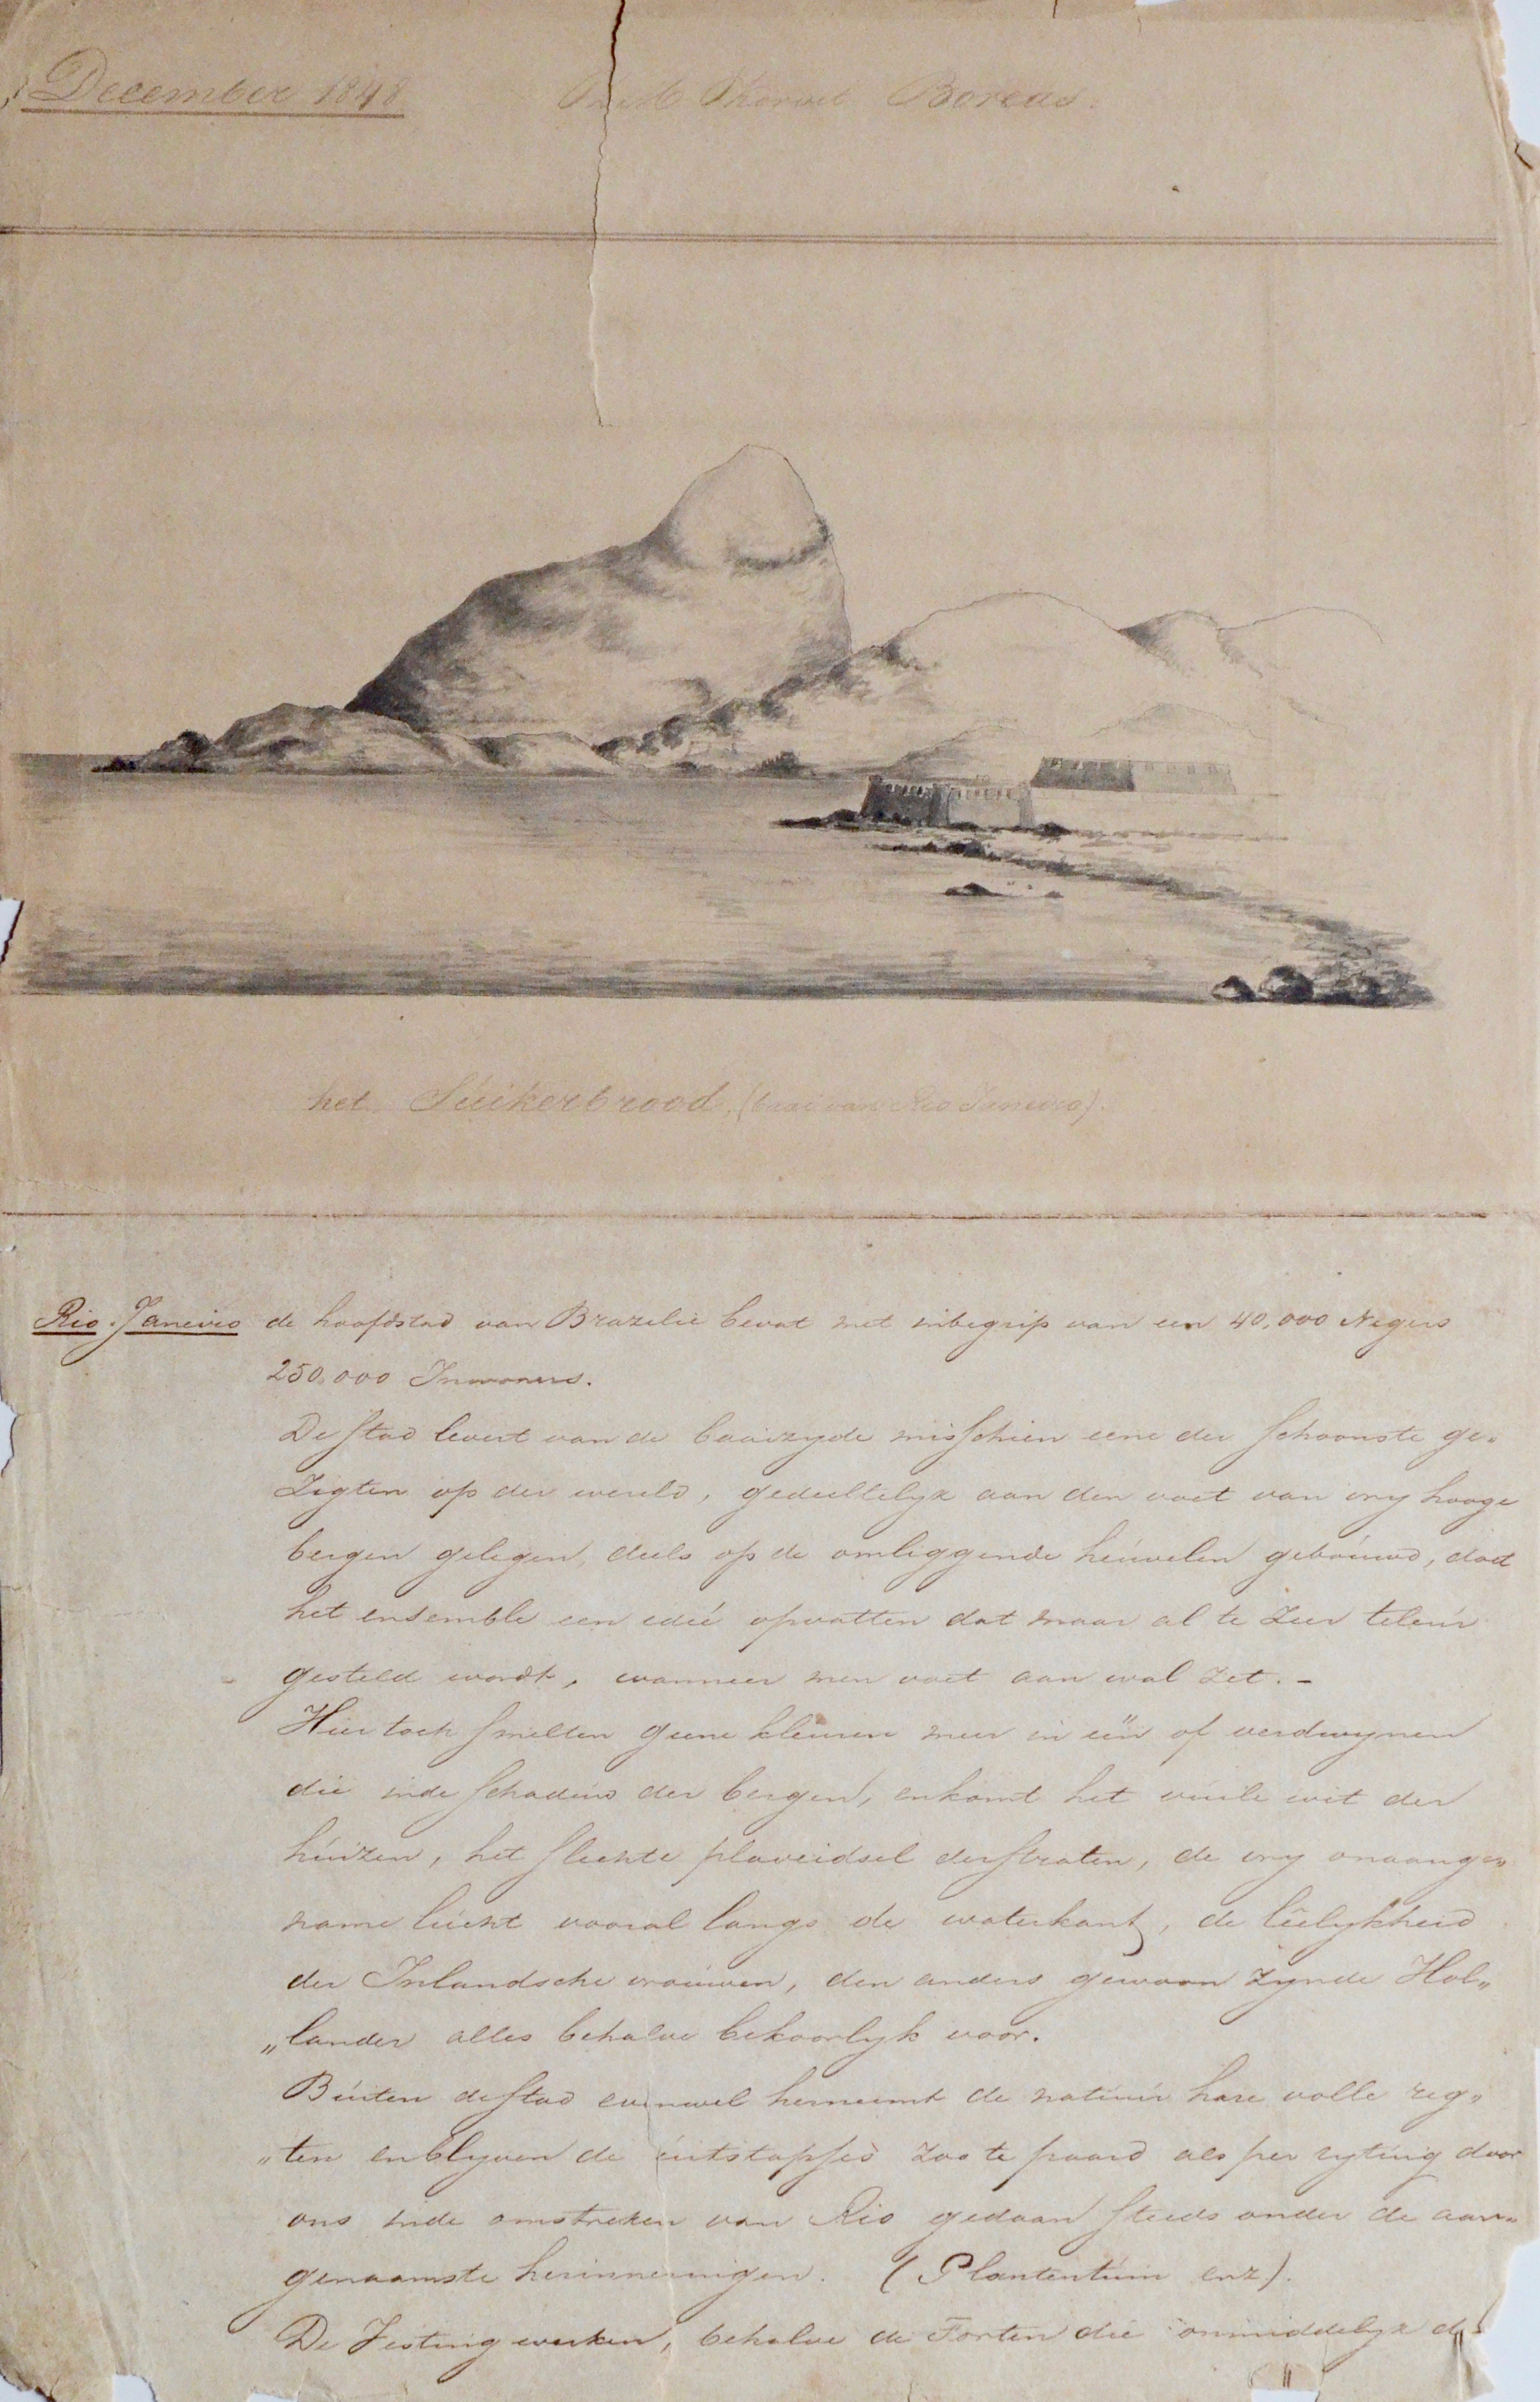 December 1848 Korvet Boreas.
het Súikerbrood, (baai van Rio Janeiro).
Rio-Janeiro de hoofdstad van Brazilie bevat met inbegrip van een 40,000 Negers
250.000 Inwoners.
De stad levert van de baaizyde misschien eene der schoonste ge„
zigten op der wereld, gedeeltelyk aan den voet van vry hooge
bergen gelegen, deels op de omliggende heúvelen geboúwd, doet
het ensemble een ideé opvatten dat maar al te zeer teleúr
gesteld wordt, wanneer men voet aan wal zet. –
Hier toch smelten geene kleúren meer in één of verdwynen
die in de schadúw der bergen, en komt het vúile wit der
húizen, het slechte plaveidsel der straten, de vry onaange„
name lúcht vooral langs de waterkant, de leelykheid
der Inlandsche vroúwen, den anders gewoon zynde Hol„
„lander alles behalve bekoorlyk voor.
Búiten de stad evenwel herneemt de natúúr hare volle reg„
„ten en blyven de úitstapjes zoo te paard als per rytúig door
ons in de omstreken van Rio gedaan steeds onder de aan„
genaamste herinneringen. (Plantentúin enz).
De Vesting werken, behalve de Forten die onmiddelyk